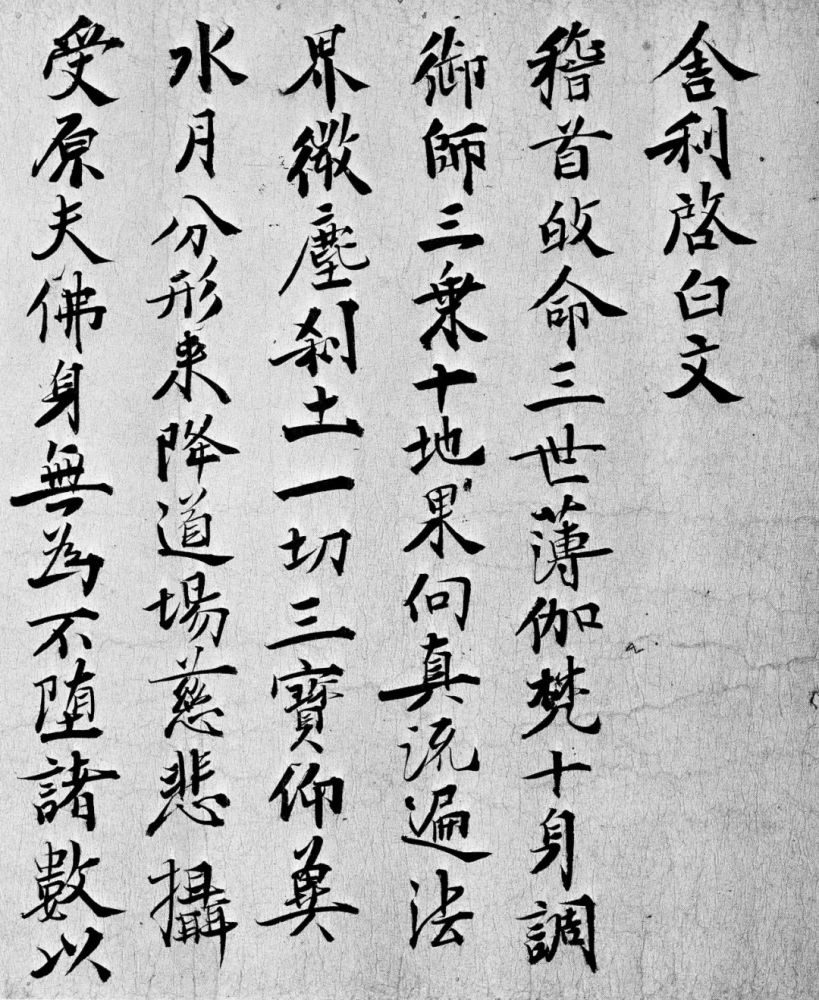 舎利啓白文
稽首歸命三世薄伽梵十身調
御師三乗十地果向真流遍法
界微塵刹土一切三寳仰冀
水月分形来降道場慈悲攝
受原夫佛身無為不堕諸數以